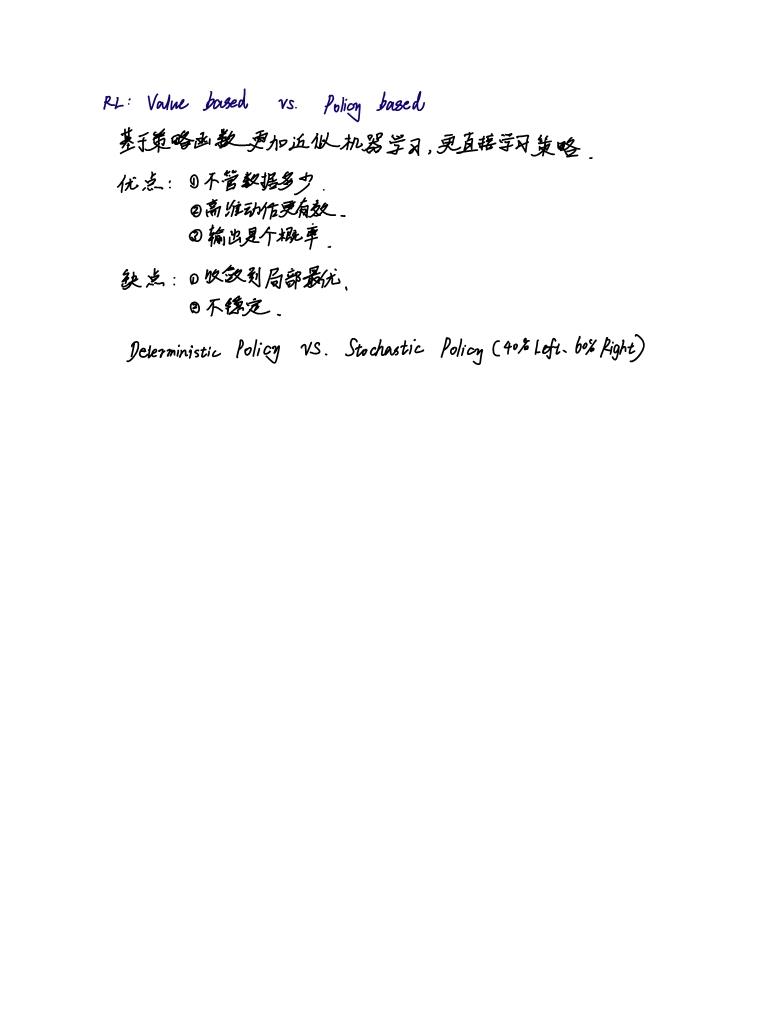 RL: Value based vs. Policy based
基于策略函数更加近似机器学习,更直接学习策略.
优点: ①不管数据多少.
②高维动作更有效.
③输出是个概率.
缺点: ①收敛到局部最优、
②不稳定.
Deterministic Policy VS. Stochastic Policy (40% Left、60% Right)